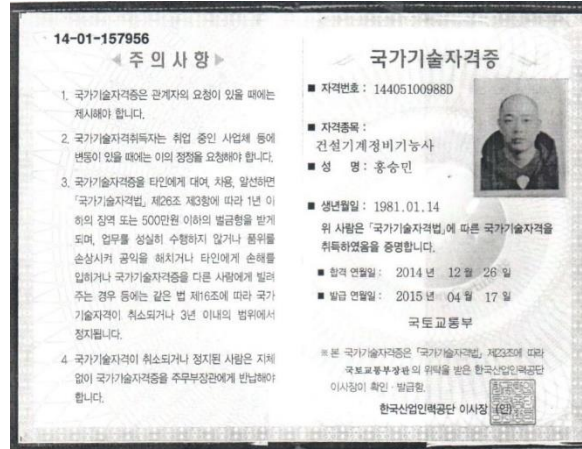 14-01-157956
주 의 사 항
1. 국가기술자격증은 관계자의 요청이 있을 때에는
제시해야 합니다.
2. 국가기술자격취득자는 취업 중인 사업체 등에
변동이 있을 때에는 이의 정정을 요청해야 합니다.
3. 국가기술자격증을 타인에게 대여, 차용, 알선하면
「국가기술자격법」 제26조 제3항에 따라 1년 이
하의 징역 또는 500만원 이하의 벌금형을 받게
되며, 업무를 성실히 수행하지 않거나 품위를
손상시켜 공익을 해치거나 타인에게 손해를
입히거나 국가기술자격증을 다른 사람에게 빌려
주는 경우 등에는 같은 법 제16조에 따라 국가
기술자격이 취소되거나 3년 이내의 범위에서
정지됩니다.
4. 국가기술자격이 취소되거나 정지된 사람은 지체
없이 국가기술자격증을 주무부장관에게 반납해야
합니다.
국가기술자격증
■ 자격번호 : 14405100988D
■ 자격종목 :
건설기계정비기능사
■ 성 명 : 홍승민
■ 생년월일 : 1981.01.14
위 사람은 「국가기술자격법」에 따른 국가기술자격을
취득하였음을 증명합니다.
■ 합격 연월일 : 2014 년 12 월 26 일
■ 발급 연월일 : 2015 년 04 월 17 일
국토교통부
※ 본 국가기술자격증은 「국가기술자격법」 제23조에 따라
국토교통부장관의 위탁을 받은 한국산업인력공단
이사장이 확인 · 발급함.
한국산업인력공단 이사장 (인)